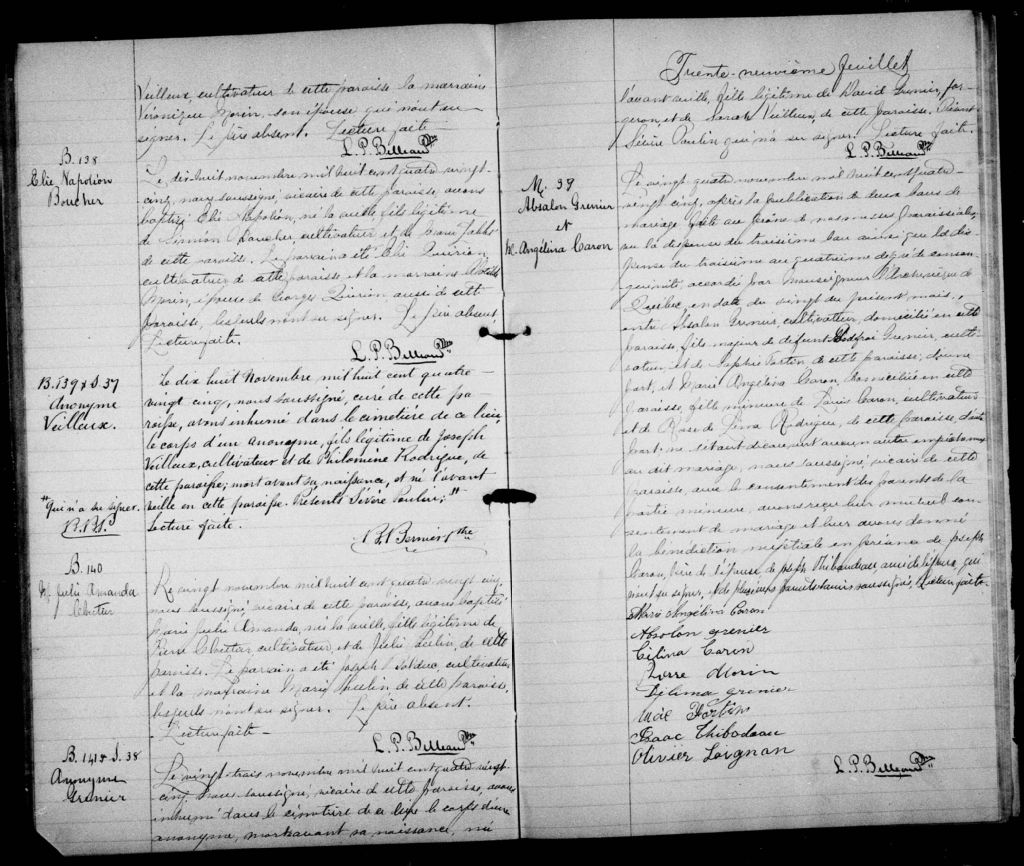 Veilleux, cultivateur de cette paroisse la marraine
Véronique Morin, son épouse qui n'ont su
signer. Le père absent. Lecture faite
L. P. Ptre
B. 138
Elie Napoléon
Boucher
Le dix huit novembre mil huit cent quatre vingt-
cinq, nous soussigné, vicaire de cette paroisse avons
baptisé Elie Napoléon, né la veille, fils légitime
de Boucher, cultivateur et de
de cette paroisse. Le parrain a été Elie Quirion,
cultivateur de cette paroisse et la marraine
Morin, épouse de Georges Quirion aussi de cette
paroisse, lesquels n'ont su signer. Le père absent
Lecture faite.
L. P. Ptre
B. 139 & S. 37
Anonyme
Veilleux.
Le dix huit Novembre mil huit cent quatre-
vingt cinq, nous soussigné, curé de cette pa
roisse, avons inhumé dans le cimetière de ce lieu,
le corps d'un anonyme, fils légitime de Joseph
Veilleux, cultivateur et de Philomène Rodrigue, de
cette paroisse; mort avant sa naissance, et né l'avant
veille en cette paroisse. Présents Sévère Poulin; "
Lecture faite.
" Qui n'a su signer.
Bernier Ptre
B. 140
M. Julie Amanda
Cloutier
Le vingt novembre mil huit cent quatre vingt cinq,
nous soussigné, vicaire de cette paroisse, avons baptisé
Marie Julie Amanda, née la veille, fille légitime de
Pierre Cloutier, cultivateur, et de Julie de cette
paroisse. Le parrain a été Joseph Bolduc, cultivateur
et la marraine Marie Poulin, de cette paroisse,
lesquels n'ont su signer. Le père absent.
Lecture faite -
L. P. Ptre
B. 141 & S. 38
Anonyme
Grenier
Le vingt-trois novembre mil huit cent quatre vingt-
cinq, nous soussigné, vicaire de cette paroisse, avons
inhumé dans le cimetière de ce lieu le corps d'une
anonyme, morte avant sa naissance, né
Trente-neuvième feuillet
l'avant veille, fille légitime de David Grenier, for-
geron, et de Sarah Veilleux, de cette paroisse. Présent
Sévère Poulin qui n'a su signer. Lecture faite.
L. P. Ptre
M. 39
Absalon Grenier
et
M. Angélina Caron
Le vingt quatre novembre mil huit cent quatre-
vingt cinq, après la publication de deux bans de
mariage faite au prône de nos messes paroissiales,
vu la dispense du troisième ban ainsi que la dis
pense du troisième au quatrième degré de consan-
guinité accordée par Monseigneur l'Archevêque de
Québec, en date du vingt du présent mois,
entre Absalon Grenier, cultivateur, domicilié en cette
paroisse, fils majeur de défunt Grenier, culti-
vateur, et de Sophie Fortin de cette paroisse, d'une
part; et Marie Angélina Caron, domiciliée en cette
paroisse, fille mineure de Louis Caron, cultivateur
et de Rose de Lima Rodrigue, de cette paroisse, d'autre
part; ne s'étant découvert aucun autre empêchement
au dit mariage, nous soussigné, vicaire de cette
paroisse, avec le consentement des parents de la
partie mineure, avons reçu leur mutuel con-
sentement de mariage et leur avons donné
la bénédiction nuptiale en présence de Joseph
Caron, frère de l'épouse, de Joseph Thibaudeau ami de l'époux, qui
n'ont su signer, et de plusieurs soussignés, Lecture faite.
Marie Angélina Caron
Absolon grenier
Célina Caron
Pierre Morin
Délima grenier
Fortin
Isaac Thibodeau
Olivier Loignon
L. P. Ptre